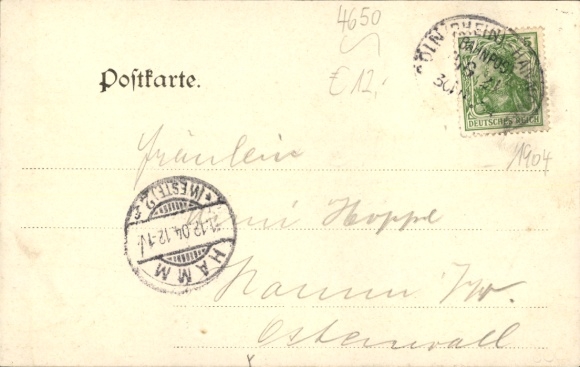 4650
€ 12,-
Postkarte.
CÖLN (RHEIN)
BAHNPOST
30
5
DEUTSCHES REICH
1904
Fräulein
Hoppe
Hamm i/W.
Ostenwall
* (WESTF.) *
.12.04.12-1
HAMM